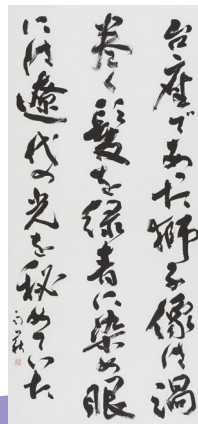 台座であった獅子像は渦
巻く髪を緑青に染め眼
には遼代の光を秘めていた